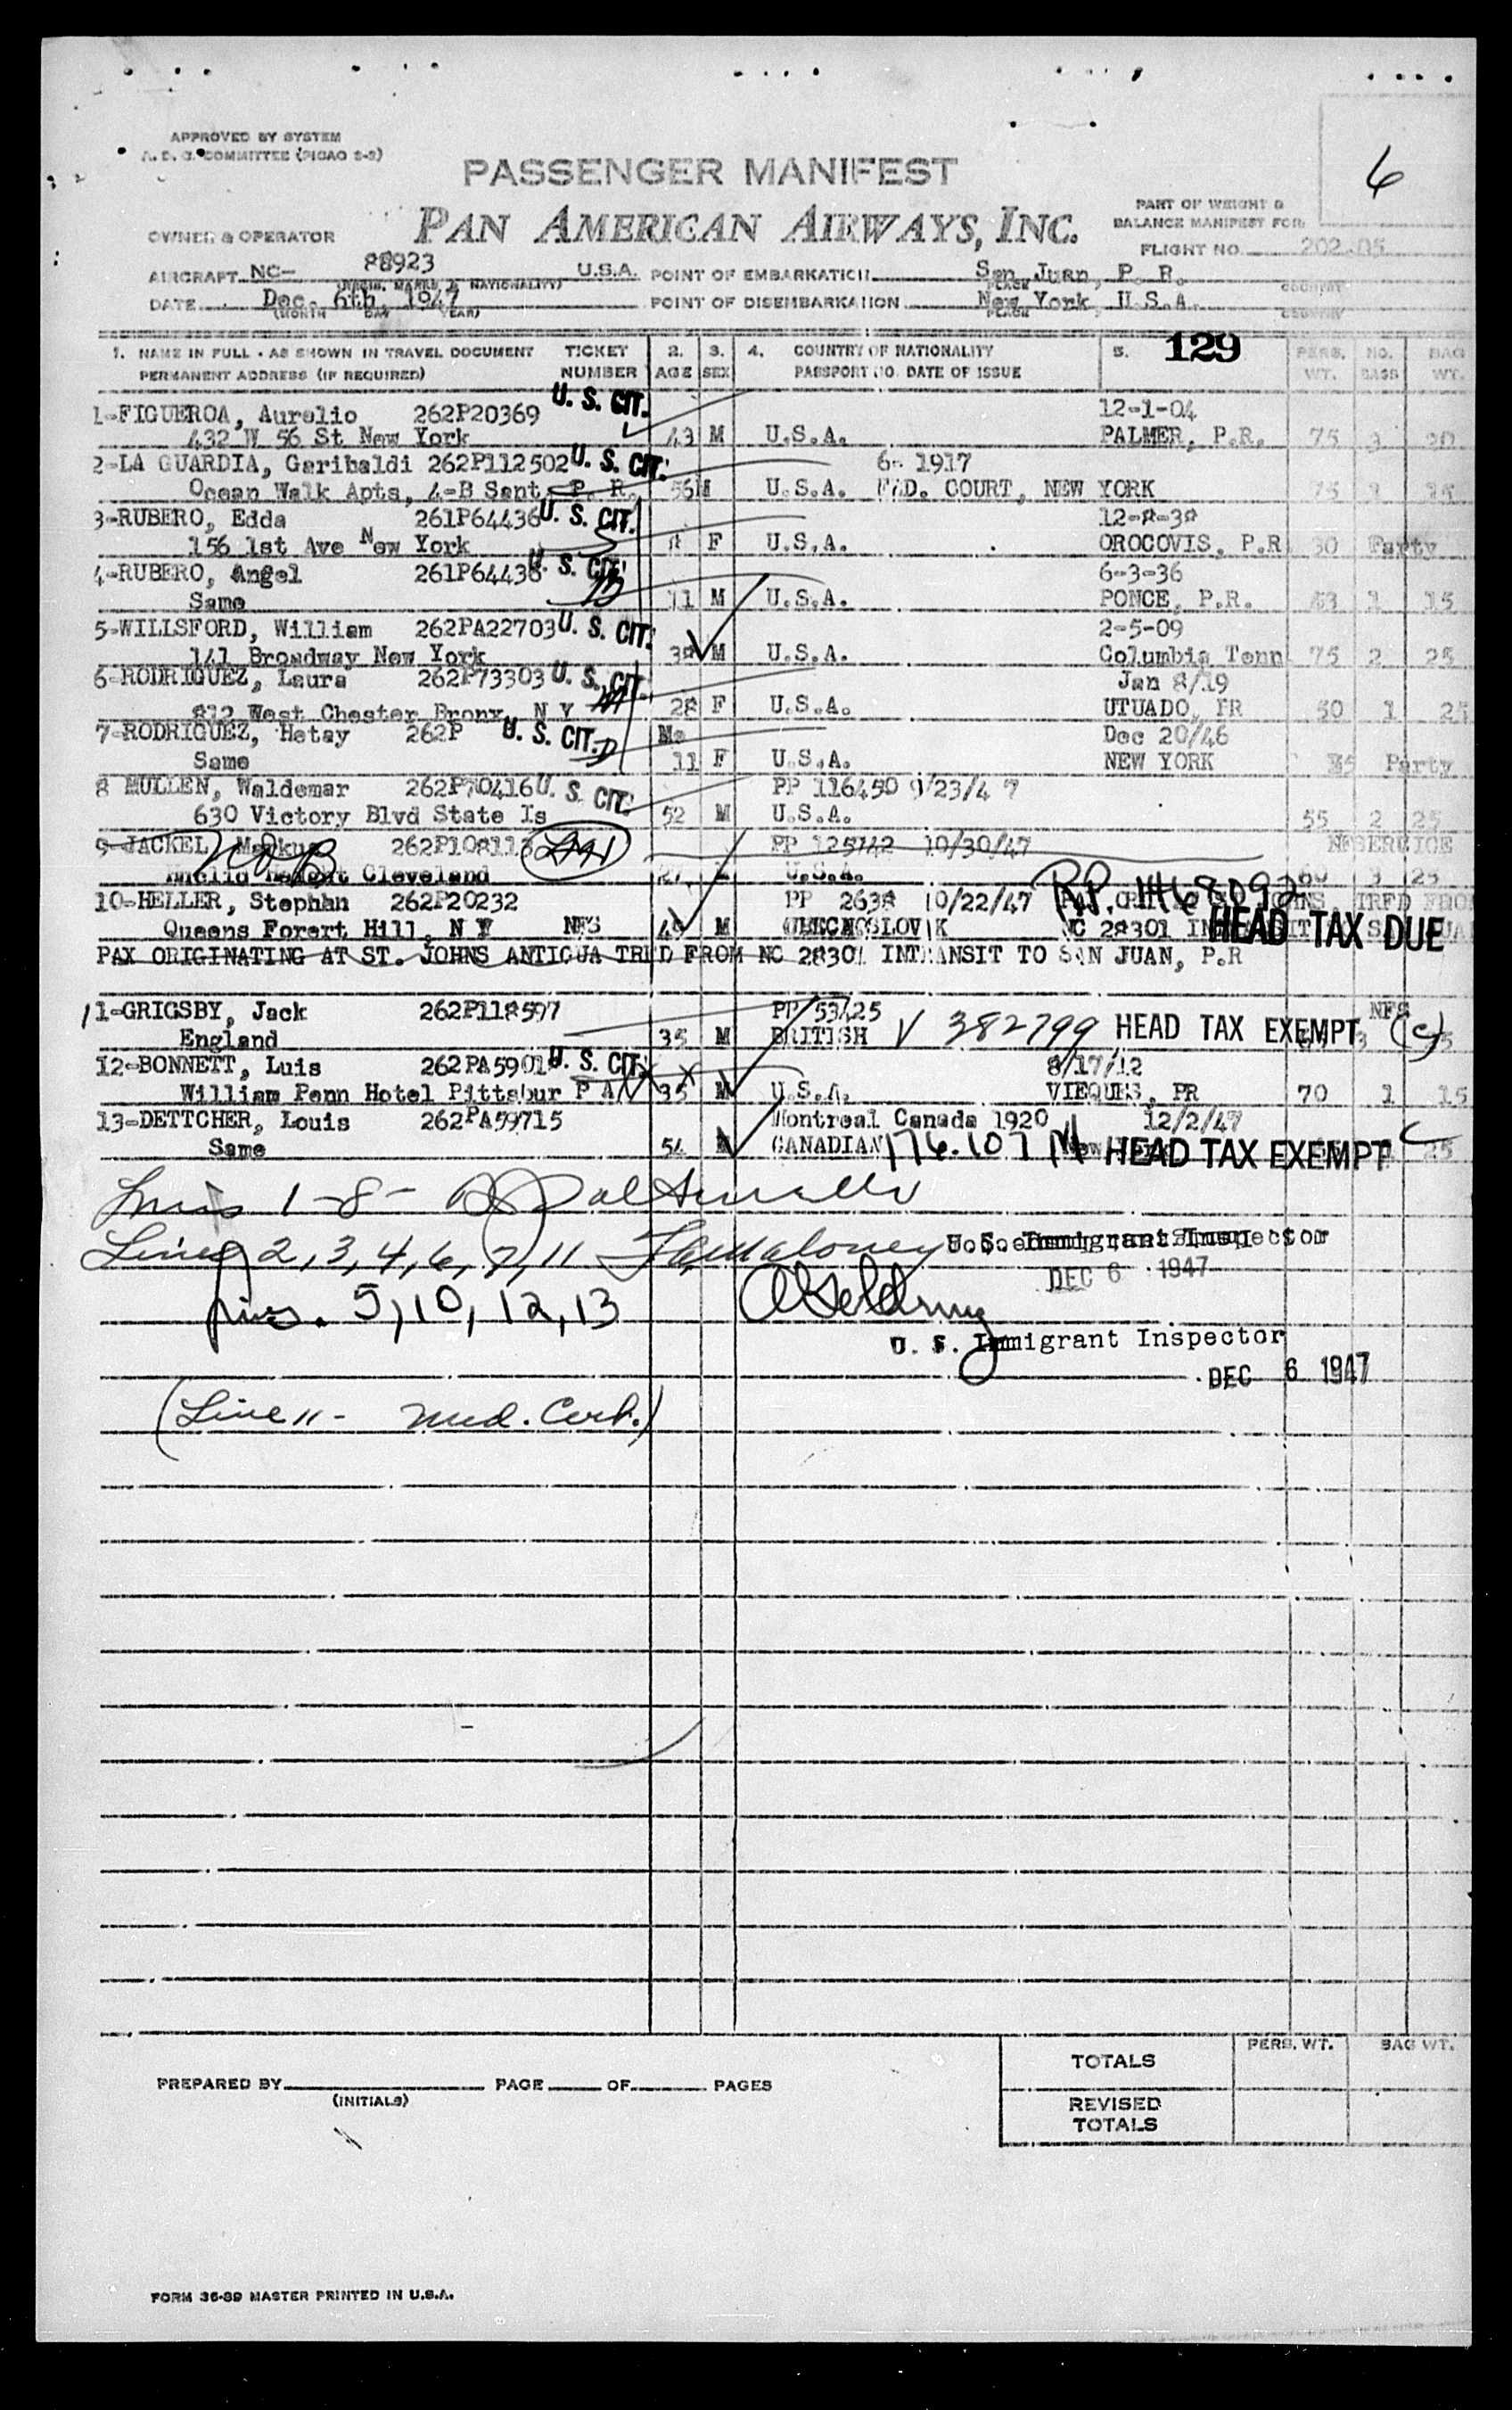 APPROVED BY SYSTEM
A. D. C. COMMITTEE (PICAO 2-2)
PASSENGER MANIFEST
6
PAN AMERICAN AIRWAYS, INC.
PART OF WEIGHT &
BALANCE MANIFEST FOR:
OWNER & OPERATOR
FLIGHT NO. 202-05
AIRCRAFT NC- 88923 U.S.A. POINT OF EMBARKATION San Juan, P. R.
(REGIS. MARKS & NATIONALITY) PLACE COUNTRY
DATE Dec. 6th, 1947 POINT OF DISEMBARKATION New York, U.S.A.
(MONTH DAY YEAR) PLACE COUNTRY
1. NAME IN FULL - AS SHOWN IN TRAVEL DOCUMENT TICKET 2. 3. 4. COUNTRY OF NATIONALITY 5. 129 PERS. NO. BAG
PERMANENT ADDRESS (IF REQUIRED) NUMBER AGE SEX PASSPORT NO. DATE OF ISSUE WT. BAGS WT.
1-FIGUEROA, Aurelio 262P20369 U. S. CIT. 12-1-04
432 W 56 St New York 43 M U.S.A. PALMER, P.R. 75 3 20
2-LA GUARDIA, Garibaldi 262P112502 U. S. CIT. 6- 1917
Ocean Walk Apts, 4-B Sant, P. R. 56 M U.S.A. FED. COURT, NEW YORK 75 1 15
3-RUBERO, Edda 261P64436 U. S. CIT. 12-8-38
156 1st Ave New York 8 F U.S.A. OROCOVIS, P.R 30 Party
4-RUBERO, Angel 261P64436 U. S. CIT. 6-3-36
Same 11 M U.S.A. PONCE, P.R. 1 15
5-WILLSFORD, William 262PA22703 U. S. CIT. 2-5-09
141 Broadway New York 38 M U.S.A. Columbia Tenn 75 2 25
6-RODRIGUEZ, Laura 262P73303 U. S. CIT. Jan 8/19
812 West Chester Bronx, N Y 28 F U.S.A. UTUADO, PR 50 1 25
7-RODRIGUEZ, Hetsy 262P U. S. CIT. Mo Dec 20/46
Same 11 F U.S.A. NEW YORK Party
8 MULLEN, Waldemar 262P70416 U. S. CIT. PP 116450 9/23/4 7
630 Victory Blvd State Is 52 M U.S.A. 55 2 25
9-JACKEL, Markus 262P108113 PP 125742 10/30/47
NOB Cleveland 27 U.S.A. 60 3 25
10-HELLER, Stephan 262P20232 PP 2638 10/22/47 R.P. 1468092
Queens Forert Hill, N Y NFS 49 M CHECHOSLOVAK NC 28301 HEAD TAX DUE
PAX ORIGINATING AT ST. JOHNS ANTIGUA TRFD FROM NC 28301 INTRANSIT TO SAN JUAN, P.R
11-GRIGSBY, Jack 262P118597 PP 53425 NFS
England 35 M BRITISH V 382799 HEAD TAX EXEMPT 3 (c)
12-BONNETT, Luis 262PA5901 U. S. CIT. 8/17/12
William Penn Hotel Pittsbur P A 35 M U.S.A. VIEQUES, PR 70 1 15
13-DETTCHER, Louis 262PA59715 Montreal Canada 1920 12/2/47
Same 54 M CANADIAN 176.107 M HEAD TAX EXEMPT C 25
Lines 1-8-
Lines 2, 3, 4, 6, 7, 11 Maloney U.S. Immigrant Inspector
DEC 6 1947
Lines. 5, 10, 12, 13
U. S. Immigrant Inspector
DEC 6 1947
(Line 11 - Med. Cert.)
PERS. WT. BAG WT.
TOTALS
PREPARED BY PAGE OF PAGES
(INITIALS)
REVISED
TOTALS
FORM 36-89 MASTER PRINTED IN U.S.A.